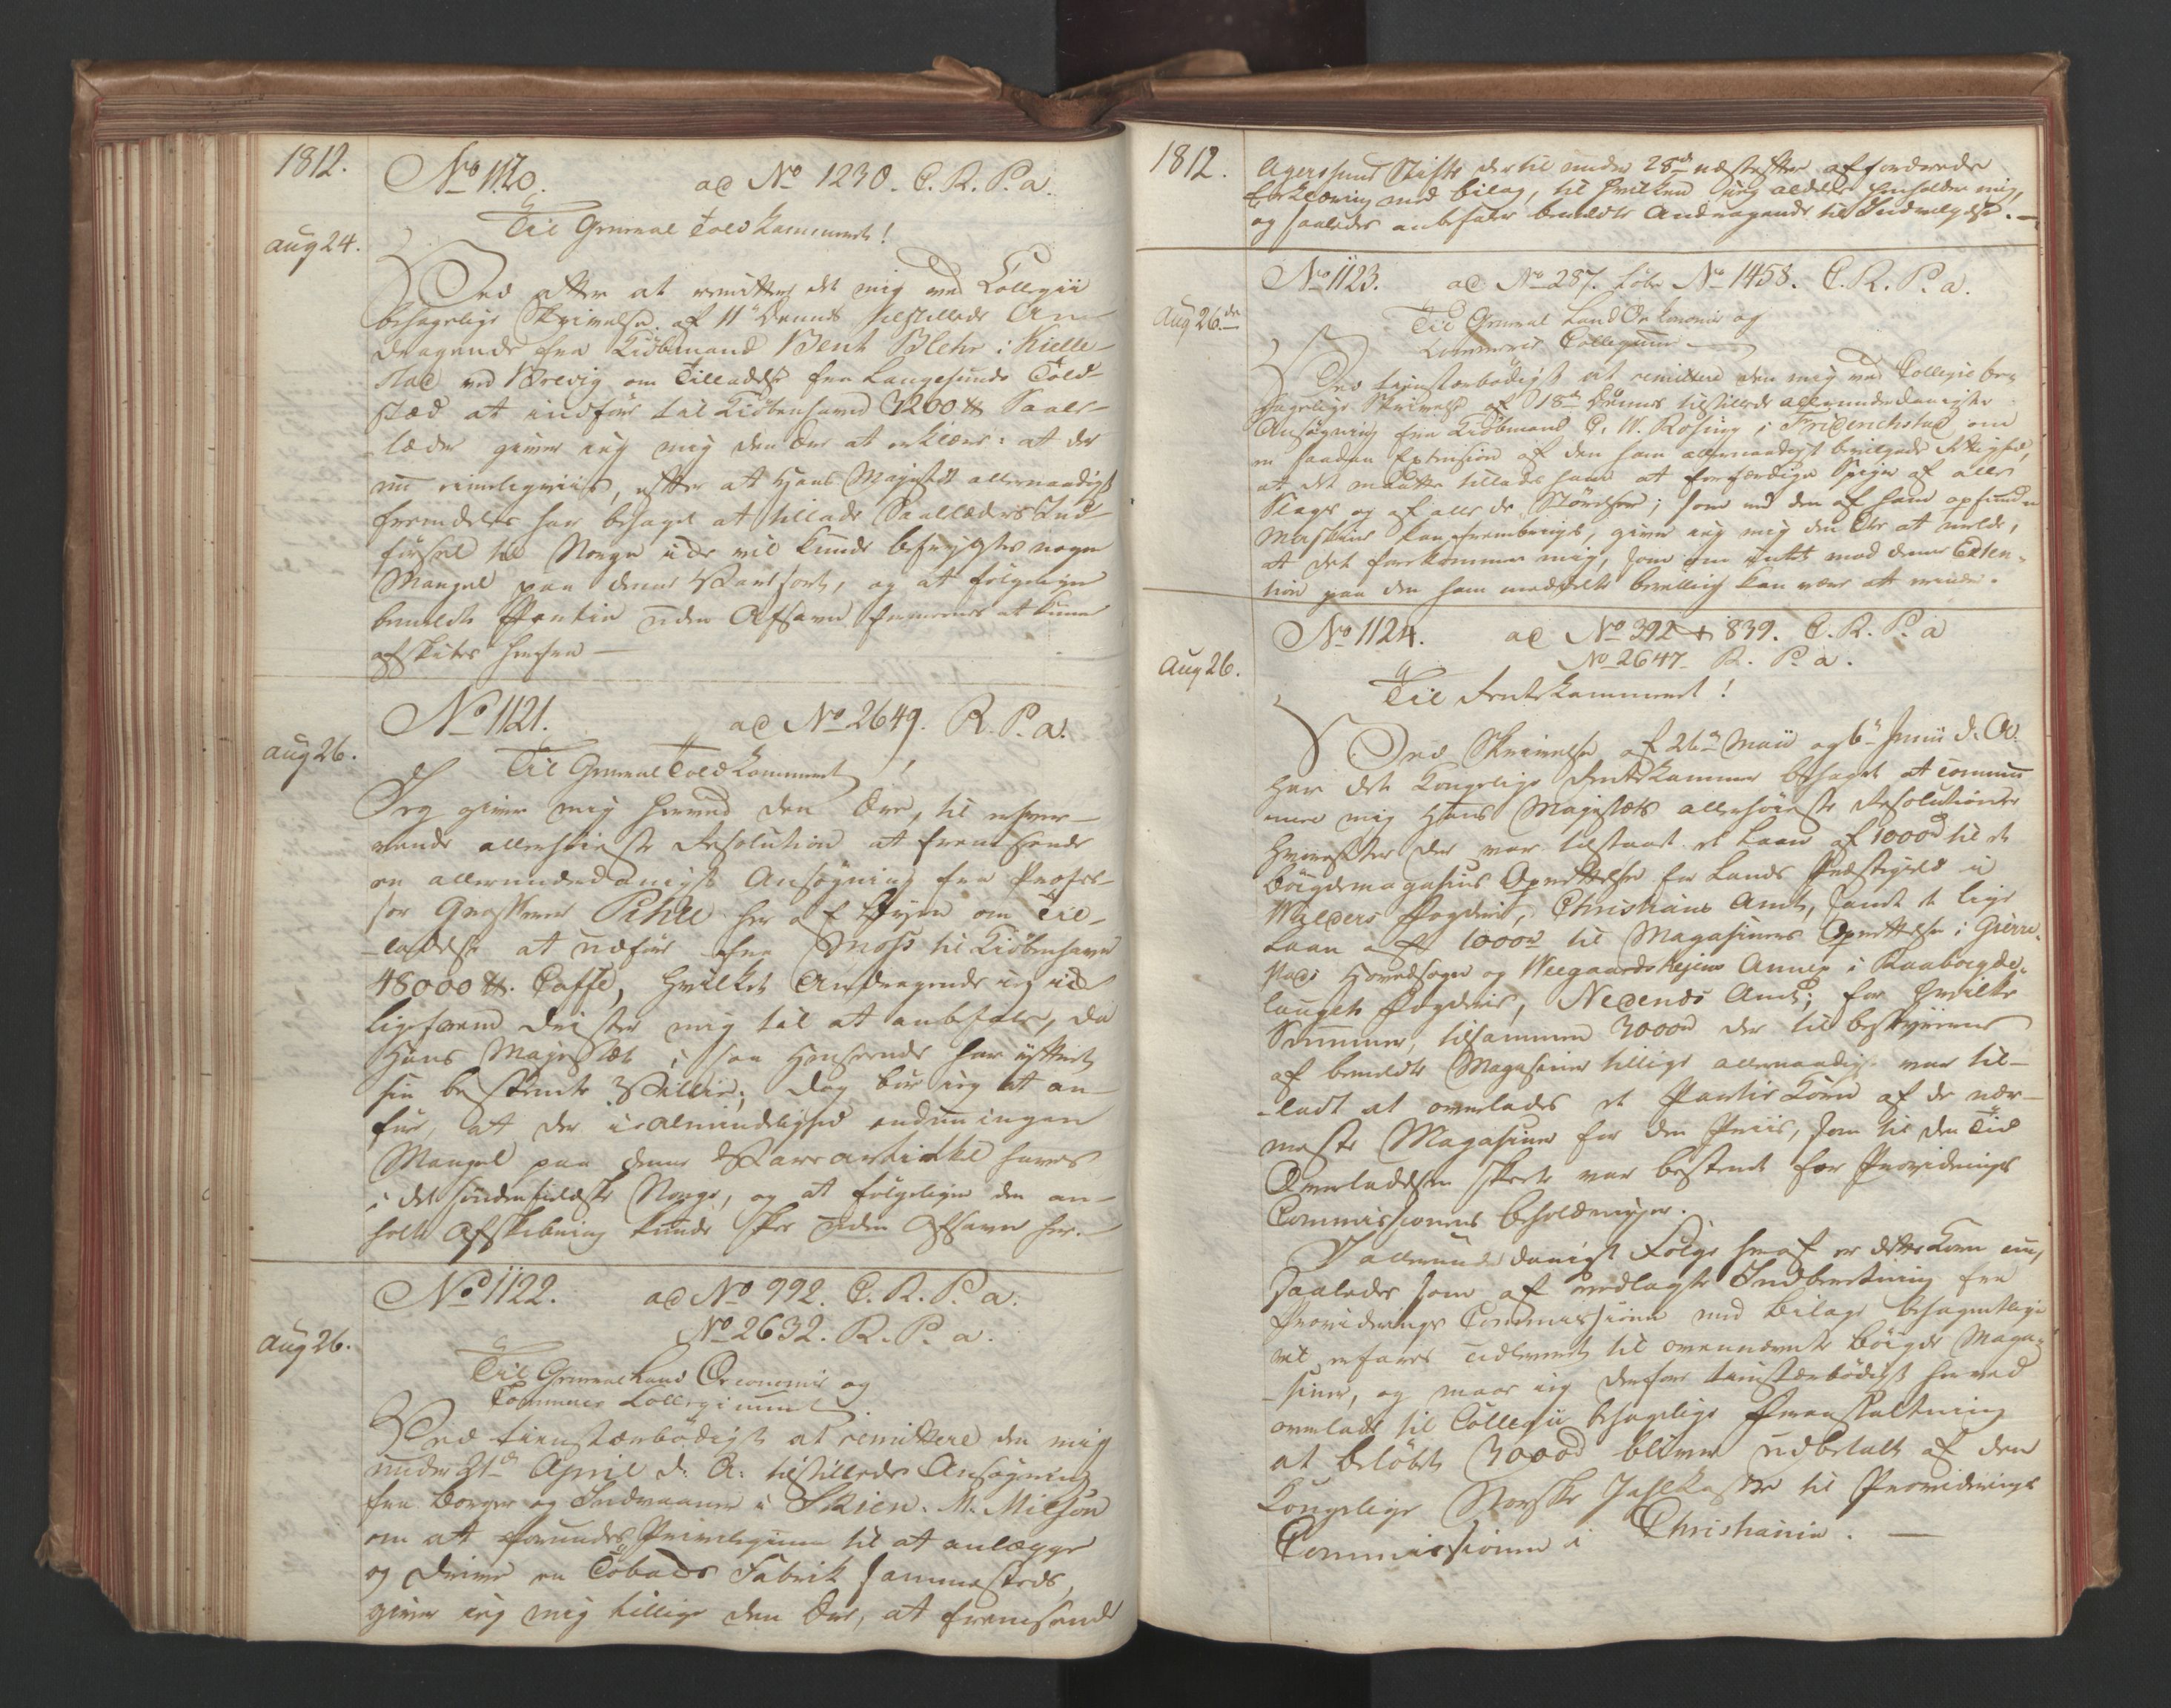 1812.
No 1120. ad No 1230. C. R. P. a.
Til General Toldkammeret!
Aug 24.
Ved efter at remittere det mig med Collegii
behagelige Skrivelse af 11te Dennes tilstillede An-
dragende fra Kiøbmand Bent Blehr i Kielle-
stad ved Brevig om Tilladelse fra Langesunds Told-
sted at indføre til Kiøbenhavn 3200 ℔ Saale-
læder giver jeg mig den Ære at erklære: at der
nu rimeligviis, efter at Hans Majestæt allernaadigst
fremdeles har behaget at tillade Saallæders Ind-
førsel til Norge ei de vil kunde befrygtes nogen
Mangel paa denne Vare sort, og at følgelig
bemeldte Partie uden Afsavn formenes at kunne
afskibes herfra —
No 1121. ad No 2649. R. P. a.
Til General Toldkammeret!
Aug 26.
Jeg giver mig herved den Ære, til erhver-
vende allerhøieste Resolution at fremsende
en allerunderdanigst Ansøgning fra Profes-
sor Grosserer Pihl her af Byen om Til-
ladelse at udføre fra Moss til Kiøbenhavn
48000 ℔. Caffe, hvilket Andragende jeg ei
ligefrem drister mig til at anbefale, da
Hans Majestæt i saa Henseende har yttret
sin bestemte Villie; dog bør jeg at an-
føre, at der i Almindelighed endnu ingen
Mangel paa denne Vare artikkel haves
i det søndenfieldske Norge, og at følgelig den an-
holdte Afskibning kunde skee uden Afsavn her. —
No 1122. ad No 992. C. R. P. a.
No 2632. R. P. a.
Til General Land Oeconomie og
Commerce Collegiumet
Aug 26.
Ved tienstærbødigst at remittere den mig
under 21de April d. A. tilstillede Ansøgning
fra Borger og Indvaaner i Skien. M. Milson
om at forundes Privilegium til at anlægge
og drive en Tobaks Fabrik sammesteds,
giver jeg mig tillige den Ære, at fremsende
1812.
Agershuus Stifts dertil under 28de næstefter affordrede
Erklæring med bilag, til hvilken jeg aldeles henholder mig,
og saaledes anbefaler bemeldte Andragende til Indvilgelse. —
No 1123. ad No 287. Løbe No 1458. C. R. P. a.
Til General Land Oe konomie og
Commerce Collegium —
Aug 26.de
Ved tienstærbødigst at remittere den mig med Collegii be-
hagelige Skrivelse af 18de Dennes tilstillede allerunderdanigste
Ansøgning fra Kiøbmand P. W. Rosing i Friderichstad om
en saadan Extension af den ham allernaadigst bevilgede Rettighed,
at det maatte tillades ham at forfærdige Spiger af alle
Slags og af alle de Størelser, som med den af ham opfundne
Maskine kan frembringes, giver jeg mig den Ære at melde,
at det forekommer mig, som om intet mod denne Exten-
tion paa den ham meddeelte bevilling kan være at erindre.
No 1124. ad No 392 & 839. C. R. P. a
No 2647 R. P. a.
Til Rentekammeret!
Aug 26.
Ved Skrivelse af 26de Maii og 6te Junii d. A.
har det Kongelige Rentekammer behaget at commu
nicere mig Hans Majestæts allerhøieste Resolutioner
hvorefter der var tilstaaet et Laan af 1000 rd til et
Bøigdemagasins Oprettelse for Lands Præstegield i
Walders Fogderie, Christians Amt, samt et lige
Laan af 1000 rd til Magasiners Oprettelse i Gierre-
stads Hovedsogn og Weegaardsheiens Annex i Raabøigde-
laugets Fogderie, Nedenes Amt; for hvilke
Summer, tilsammen 3000 rd der til bestyrerne
af bemeldte Magasiner tillige allernaadigst var til-
ladt at overlades et Partie Korn af de nær-
meste Magasiner for den Priis, som til den Tid
Overladelsen skeete var bestemt for Providerings
Commissionens beholdninger.
I allerunderdanigst Følge heraf er dette Korn nu,
saaledes som af vedlagte Indberetning fra
Providerings Commissionen med Bilage behageligen
vil erfares udleveret til ovennævnte Bøigde Maga-
siner, og maae jeg derfor tienstærbødigst herved
overlade til Collegii behagelige Foranstaltning
at beløbet 3000 rd bliver udbetalt af den
Kongelige Norske Zahlkasse til Providerings
Commissionen i Christiania. —